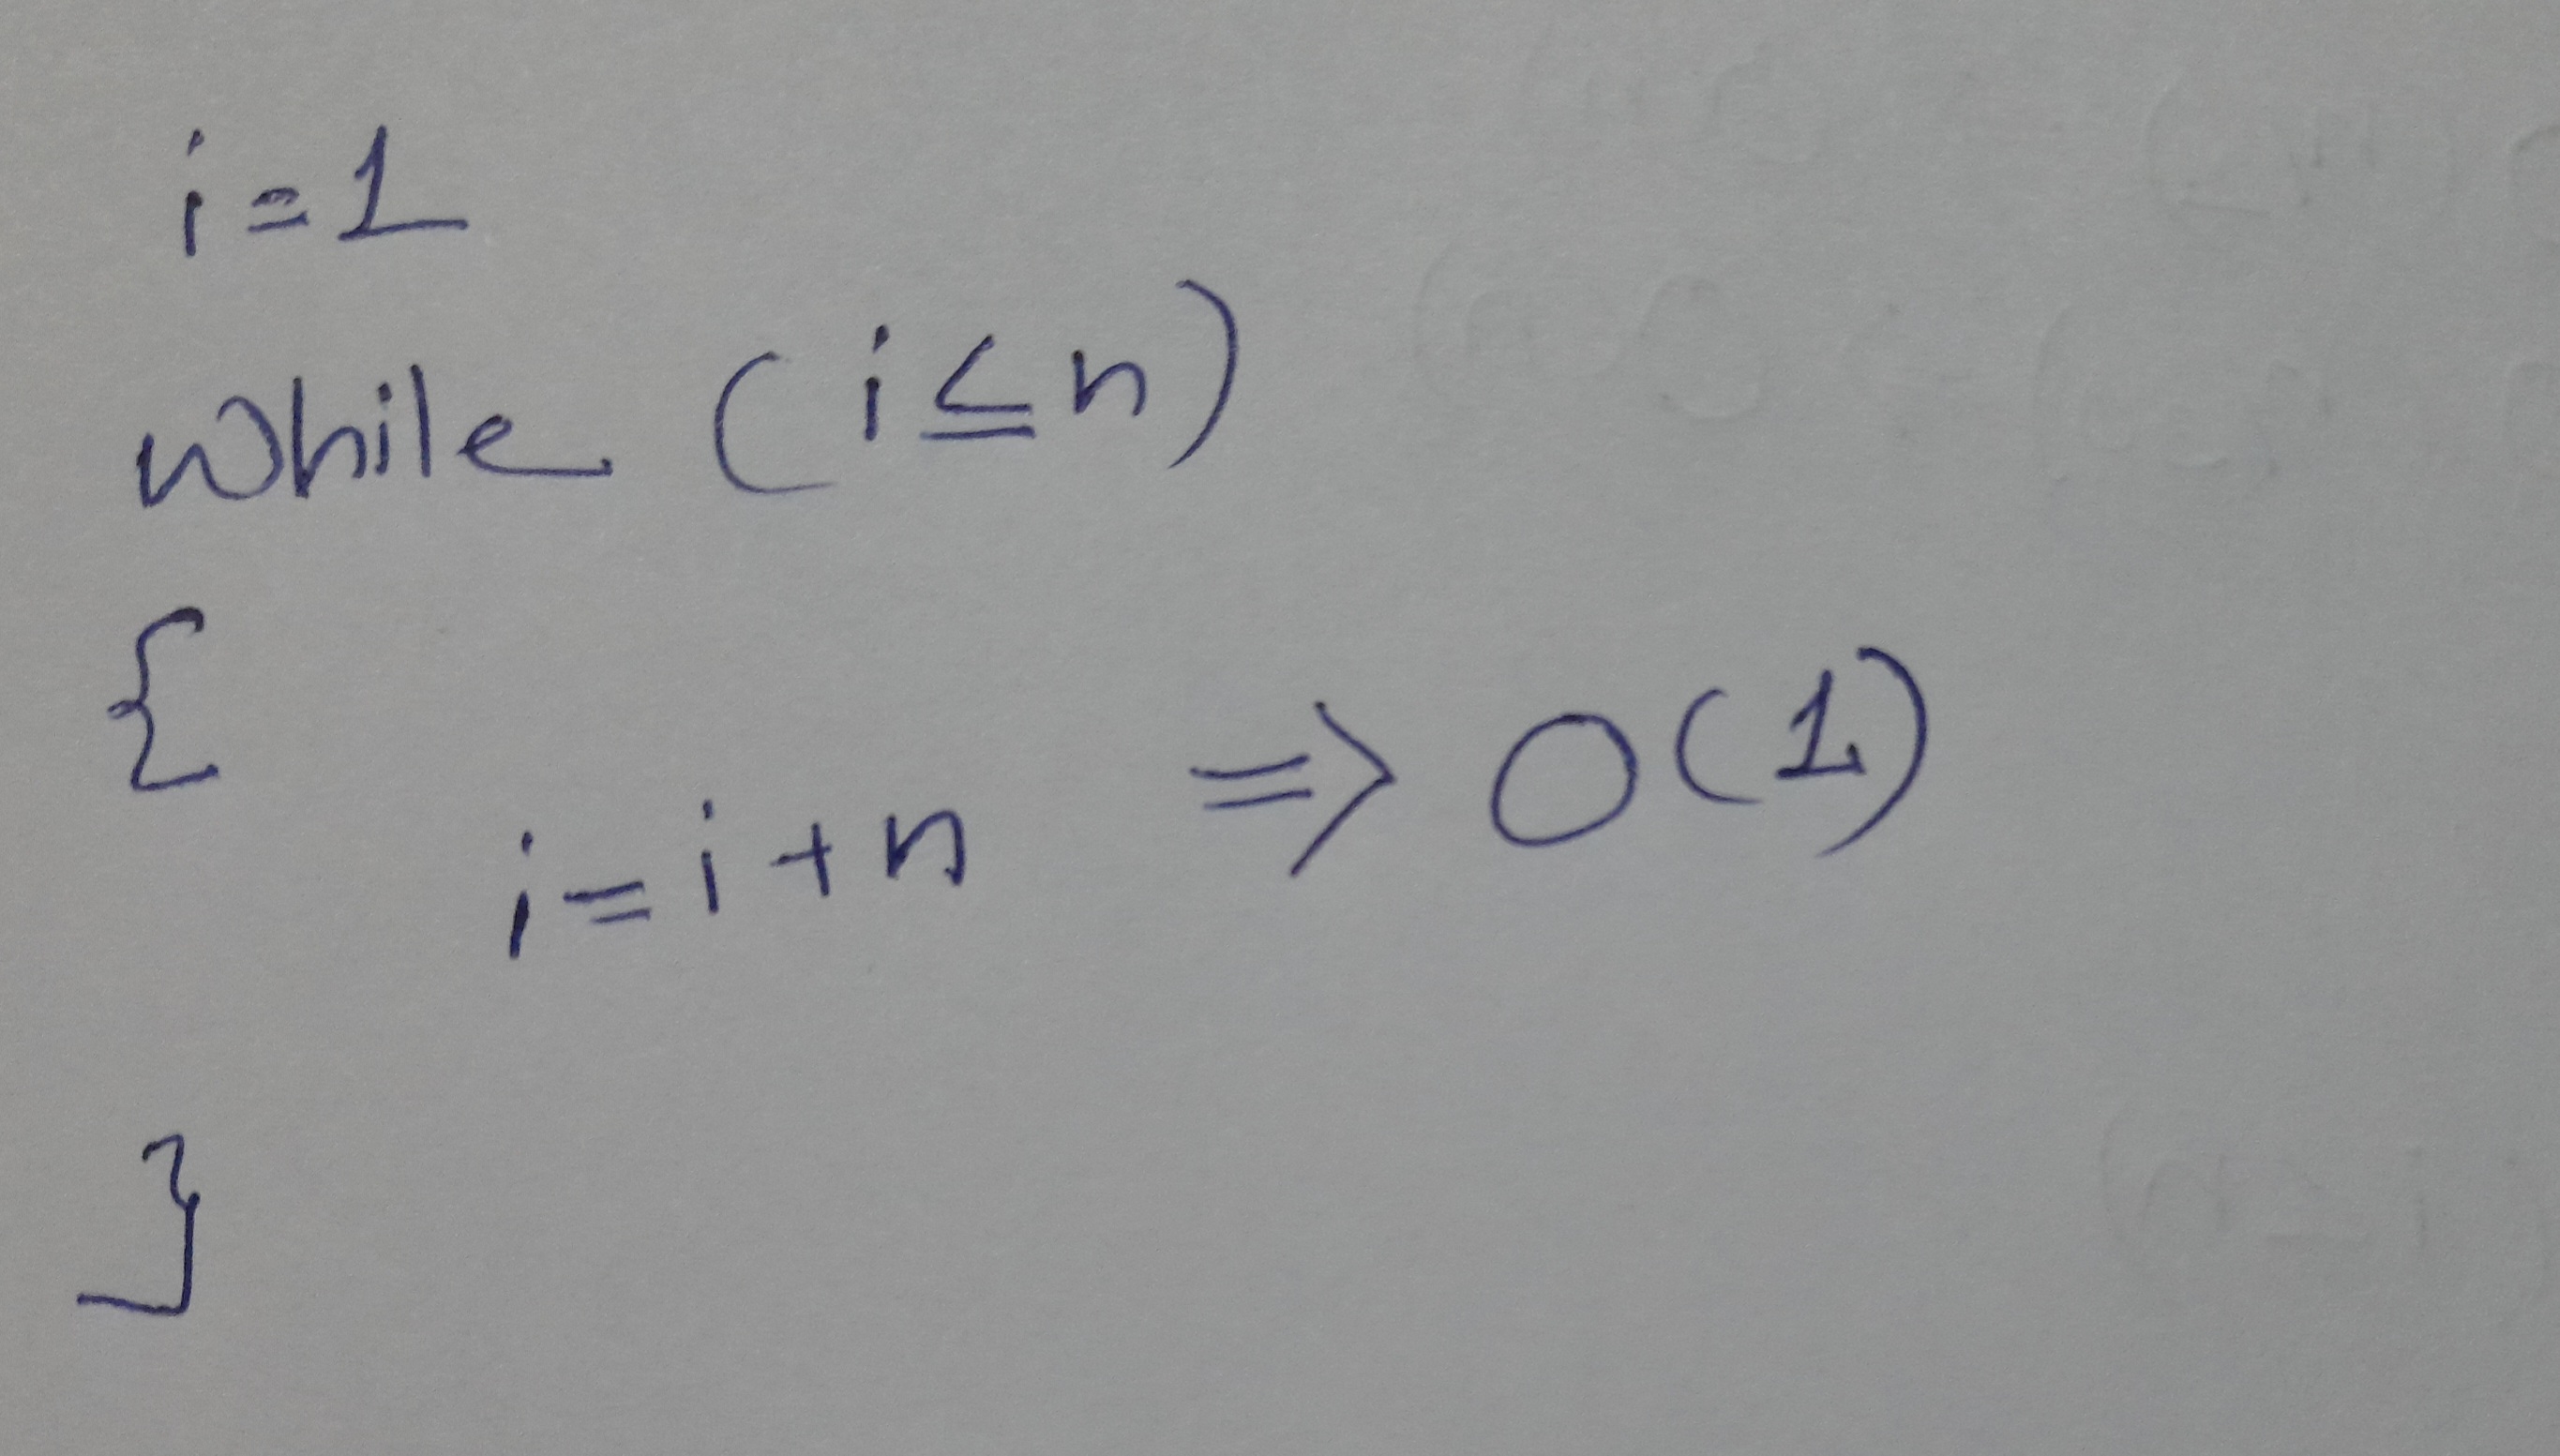 i=1
while (i≤n)
{
i=i+n ⇒ O(1)
}